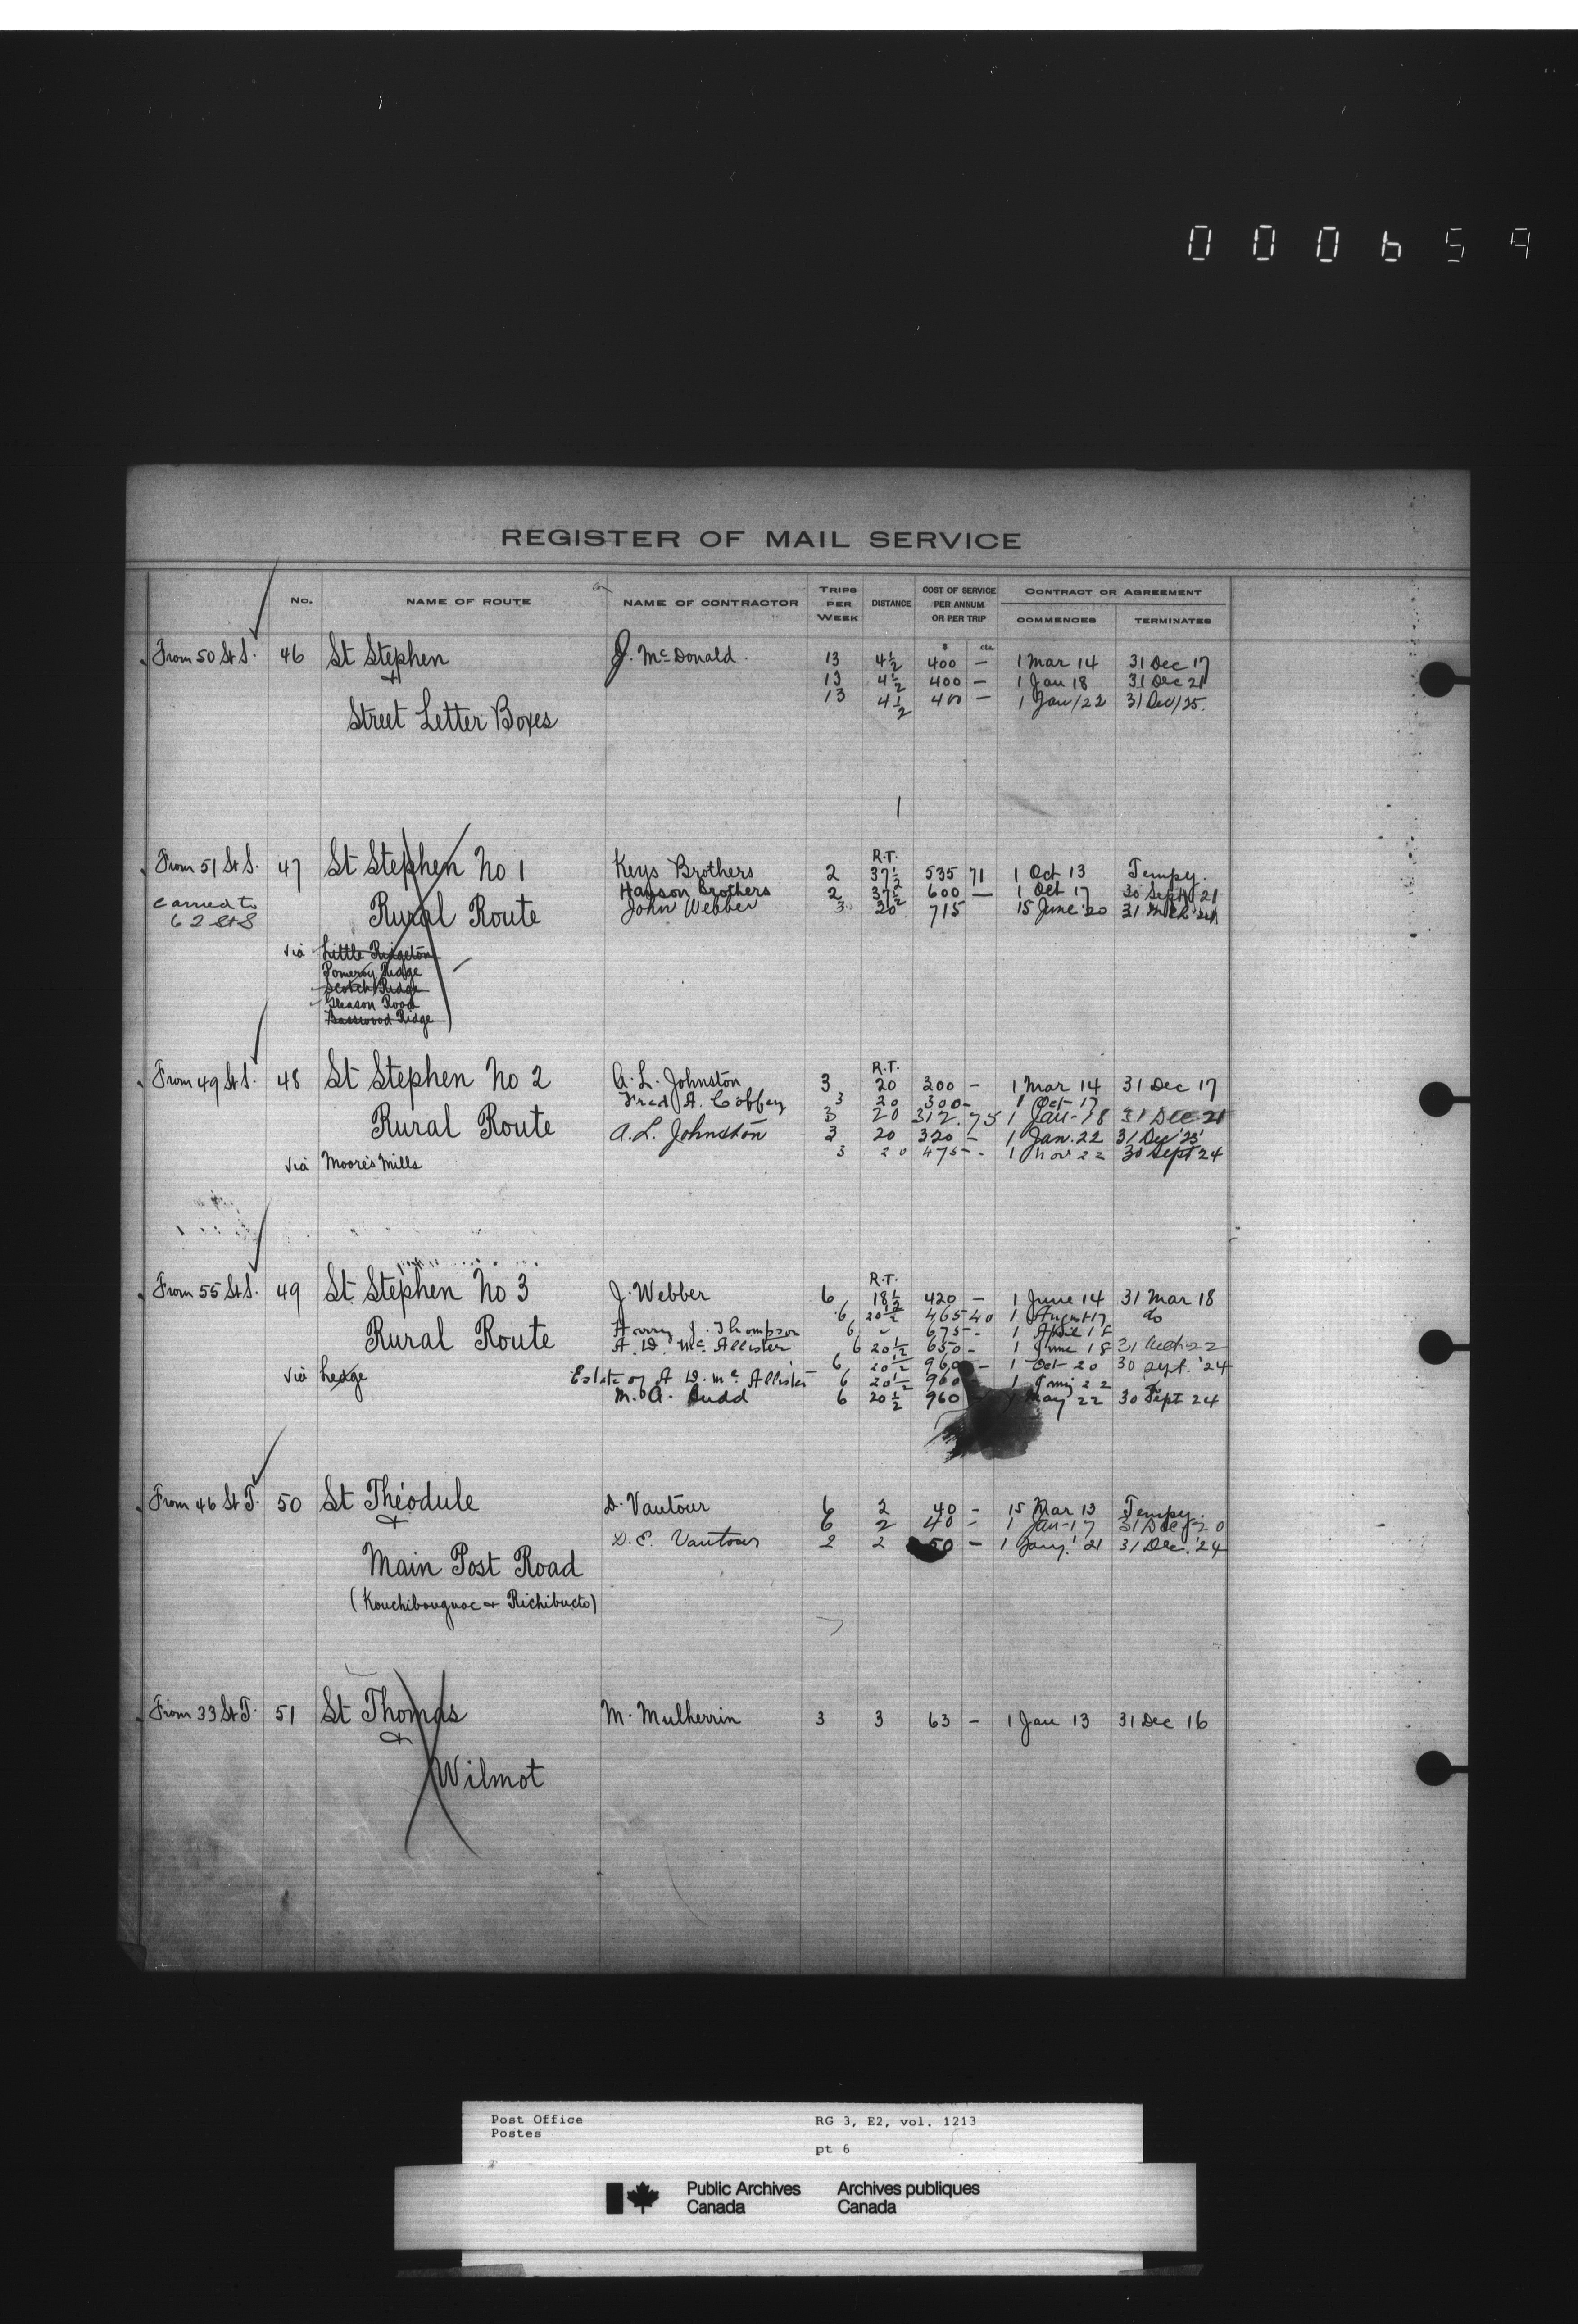 000659
REGISTER OF MAIL SERVICE
No. NAME OF ROUTE NAME OF CONTRACTOR TRIPS PER WEEK DISTANCE COST OF SERVICE PER ANNUM OR PER TRIP CONTRACT OR AGREEMENT
COMMENCES TERMINATES
$ cts.
From 50 St S. 46 St Stephen J. McDonald. 13 4½ 400 – 1 Mar 14 31 Dec 17
& 13 4½ 400 – 1 Jan 18 31 Dec 21
Street Letter Boxes 13 4½ 400 – 1 Jan/22 31 Dec/25.
R.T.
From 51 St S. 47 St Stephen No 1 Keys Brothers 2 37½ 535 71 1 Oct 13 Tempy.
carried to Hanson Brothers 2 37½ 600 — 1 Oct 17 30 Sept 21
62 StS Rural Route John Webber 3 20 715 15 June 20 31
via Little Ridgeton
Pomeroy Ridge
Scotch Ridge
Gleason Road
Basswood Ridge
R.T.
From 49 St S. 48 St Stephen No 2 A. L. Johnston 3 20 300 – 1 Mar 14 31 Dec 17
Fred A. Coffey 3 20 300 – 1 Oct-17
Rural Route 3 20 312.75 1 Jan-18 31 Dec-21
A. L. Johnston 3 20 320 – 1 Jan. 22 31 Dec '25
via Moore's Mills 3 20 475 – 1 Nov 22 30 Sept 24
R.T.
From 55 St S. 49 St Stephen No 3 J. Webber 6 18½ 420 – 1 June 14 31 Mar 18
6 20½ 465 40 1 August 17 do
Rural Route Harry J. Thompson 6 " 675 – 1 April 18
A. D. McAllister 6 20½ 650 – 1 June 18 31 22
6 20½ 960 – 1 Oct 20 30 Sept. '24
via Ledge Estate of A. D. McAllister 6 20½ 960 1 22
M. A. Budd 6 20½ 960 1 May 22 30 Sept 24
From 46 St T. 50 St Théodule D. Vautour 6 2 40 – 15 Mar 13 Tempy.
& 6 2 40 – 1 Jan-17 31 Dec-20
D. E. Vautour 2 2 50 – 1 Jany. '21 31 Dec. '24
Main Post Road
(Kouchibouguac & Richibucto)
From 33 St T. 51 St Thomas M. Mulherrin 3 3 63 – 1 Jan 13 31 Dec 16
&
Wilmot
Post Office RG 3, E2, vol. 1213
Postes
pt 6
Public Archives Archives publiques
Canada Canada